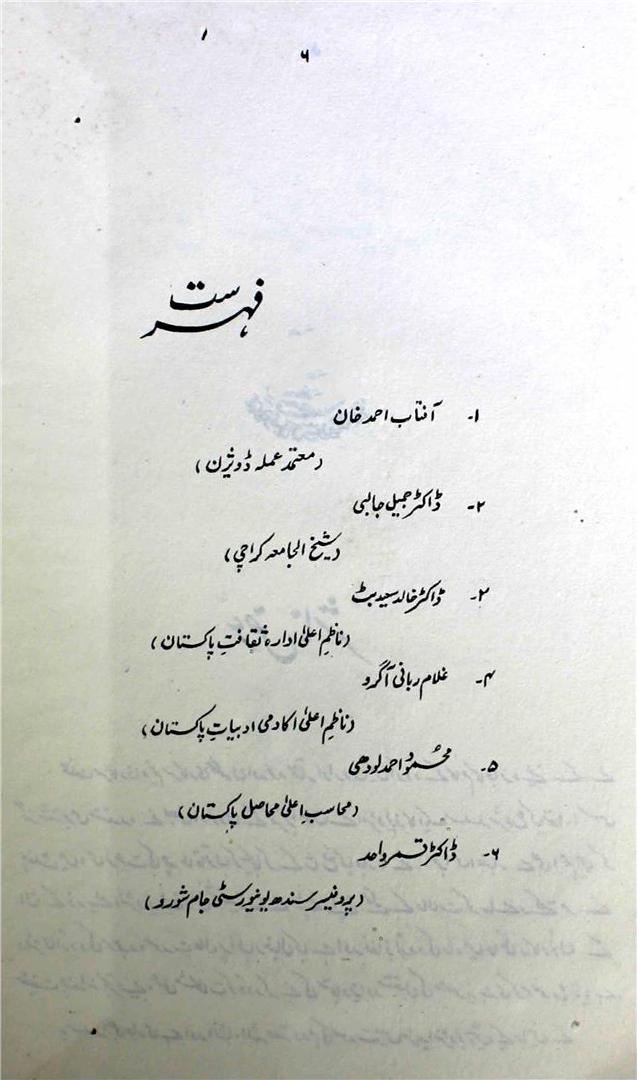 ۶
فہرست
۱۔ آفتاب احمد خان
(معتمد عملہ ڈویژن)
۲۔ ڈاکٹر جمیل جالبی
(شیخ الجامعہ کراچی)
۳۔ ڈاکٹر خالد سعید بٹ
(ناظمِ اعلیٰ ادارہ ثقافتِ پاکستان)
۴۔ غلام ربانی آگرو
(ناظمِ اعلیٰ اکادمی ادبیاتِ پاکستان)
۵۔ محمود احمد لودھی
(محاسبِ اعلیٰ محاصل پاکستان)
۶۔ ڈاکٹر قمر واحد
(پروفیسر سندھ یونیورسٹی جام شورو)